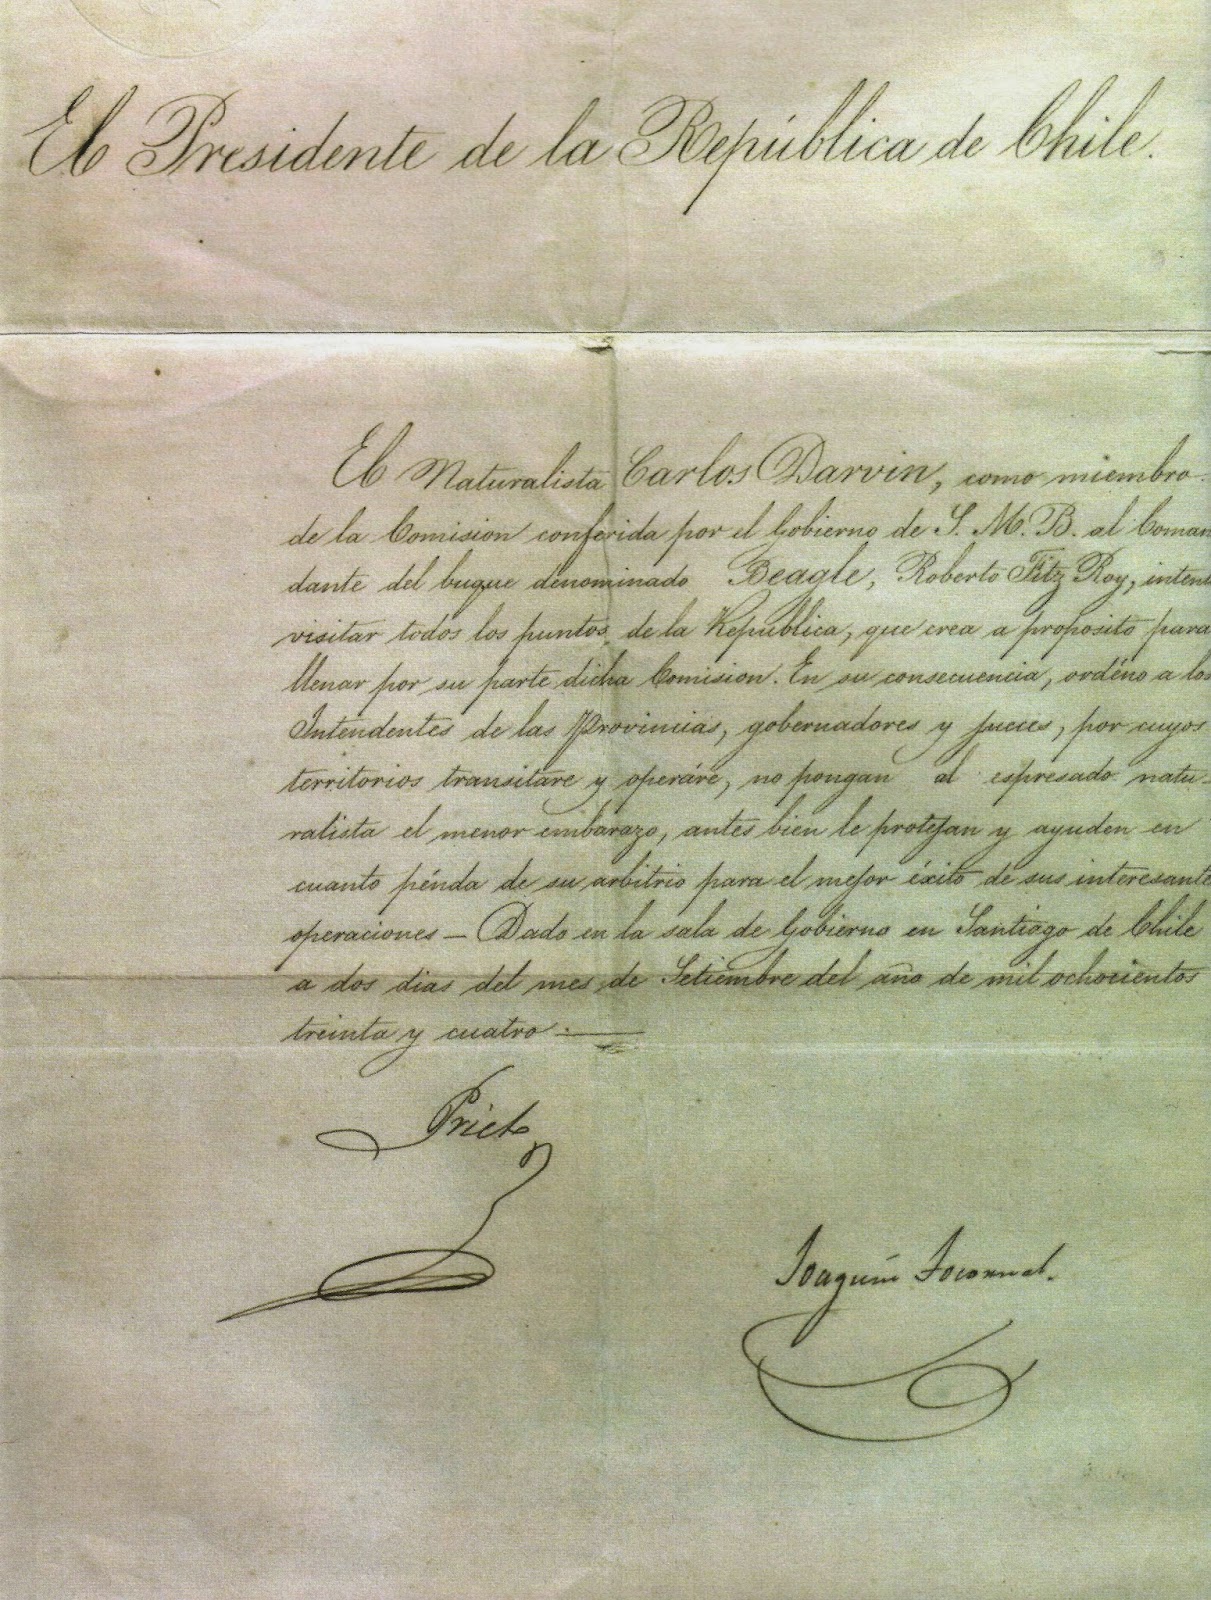 El Presidente de la República de Chile.
El Naturalista Carlos Darvin, como miembro
de la Comision conferida por el Gobierno de S. M. B. al Coman
dante del buque denominado Beagle, Roberto Fitz Roy, intent
visitar todos los puntos de la República, que crea a proposito para
llenar por su parte dicha Comision. En su consecuencia, ordéno a los
Intendentes de las Provincias, gobernadores y jueces, por cuyos
territorios transitare y operáre, no pongan al espresado natu-
ralista el menor embarazo, antes bien le protejan y ayuden en
cuanto pénda de su arbitrio para el mejor éxito de sus interesante
operaciones — Dado en la sala de Gobierno en Santiago de Chile
a dos dias del mes de Setiembre del año de mil ochocientos
treinta y cuatro.
Prieto
Joaquín Tocornal.